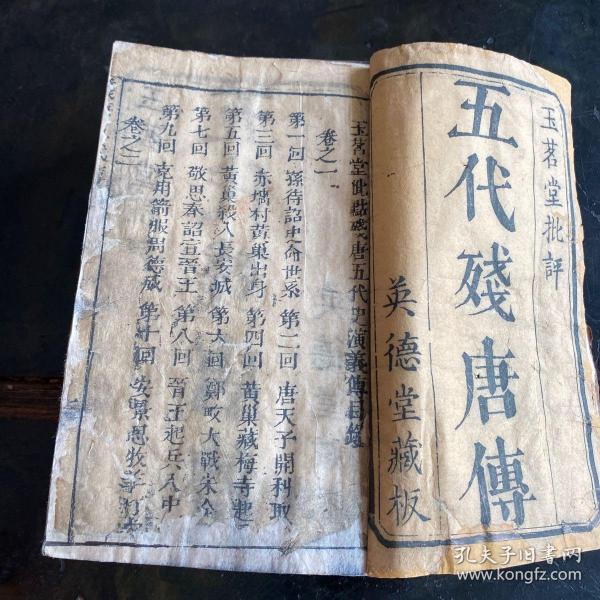 玉茗堂批評
五代殘唐傳
英德堂藏板
玉茗堂批點殘唐五代史演義傳目錄
卷之一
第一回 孫待詔史命世系 第二回 唐天子開科取
第三回 赤墻村黃巢出身 第四回 黃巢藏梅寺
第五回 黃巢殺入長安城 第六回 鄭畋大戰宋
第七回 敬思奉詔宣晉王 第八回 晉王起兵入中
第九回 克用箭服周德威 第十回 安景思牧羊打
卷之二
孔夫子旧书网
www.kongfz.com